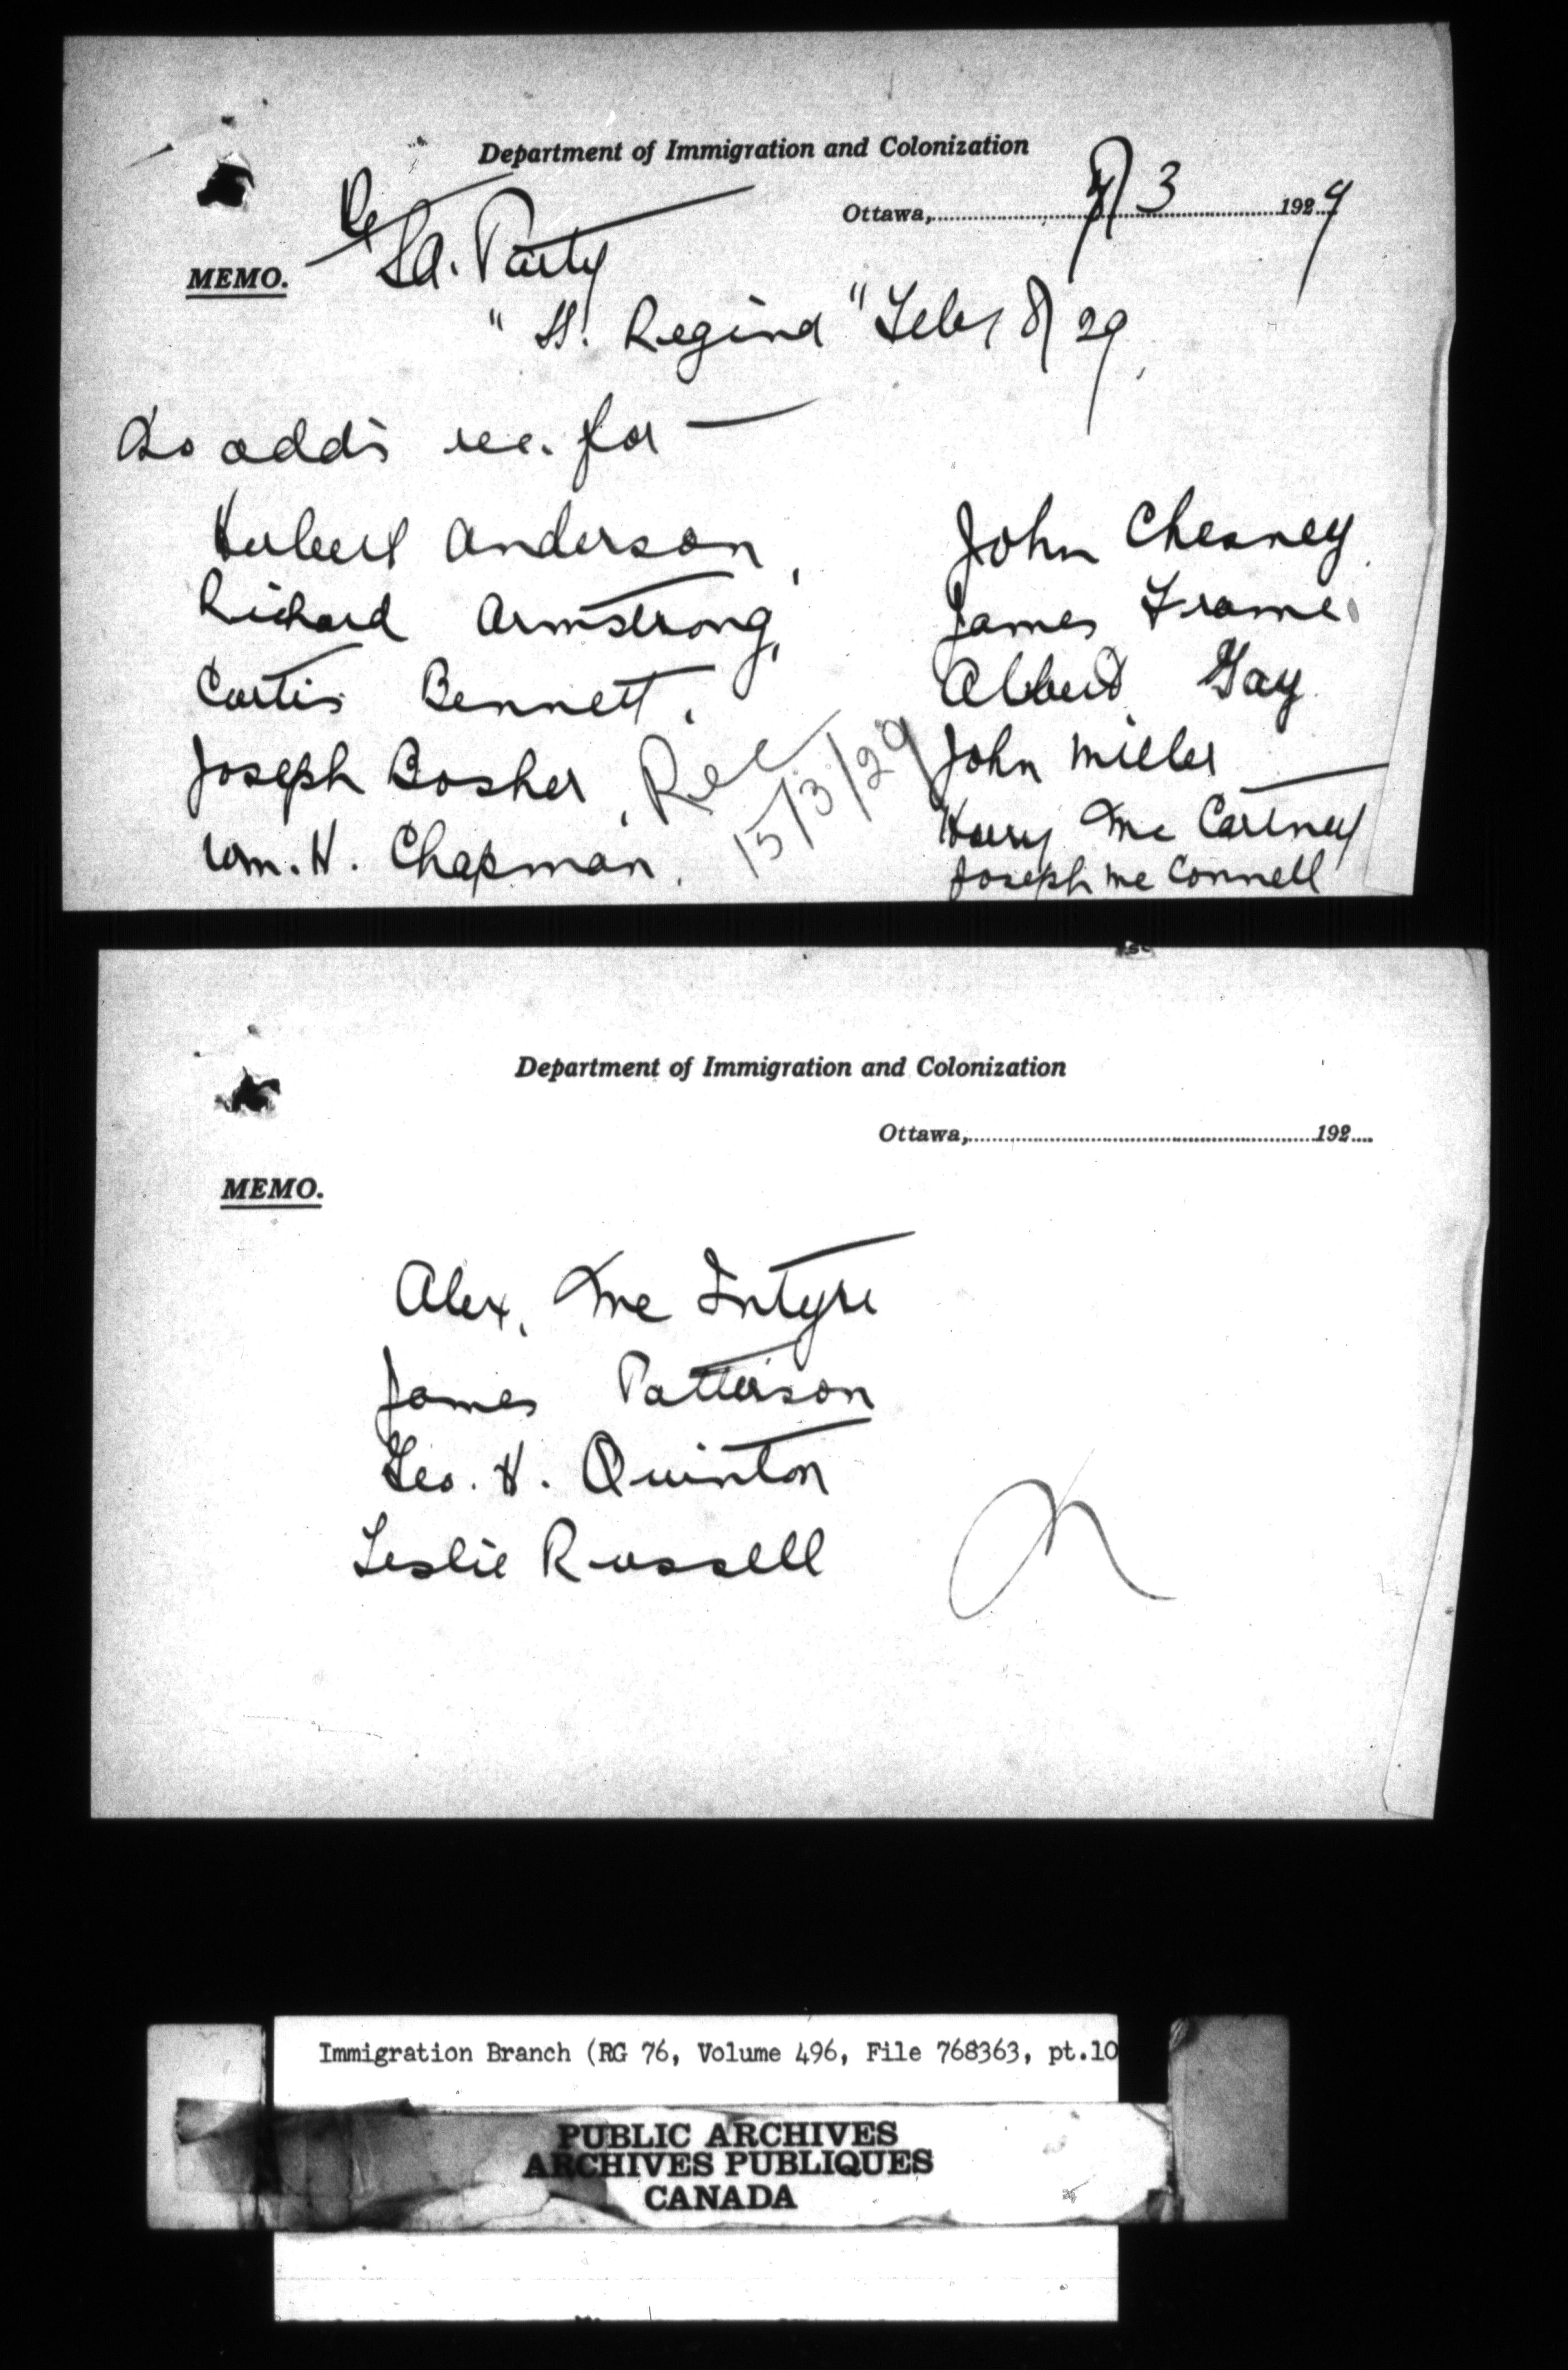 Department of Immigration and Colonization
Ottawa, 7/3 1929
MEMO.
Re
S.A. Party
"SS. Regina" Feby 8/29
No add's rec. for —
Herbert Anderson,
Richard Armstrong,
Curtis Bennett,
Joseph Bosher,
Wm. H. Chapman.
Rec
15/3/29
John Chesney
James Frame
Albert Gay
John Miller
Harry Mc Cartney
Joseph Mc Connell
Department of Immigration and Colonization
Ottawa, 192
MEMO.
Alex. Mc Intyre
James Patterson
Geo. H. Quinton
Leslie Russell
Immigration Branch (RG 76, Volume 496, File 768363, pt.10
PUBLIC ARCHIVES
ARCHIVES PUBLIQUES
CANADA